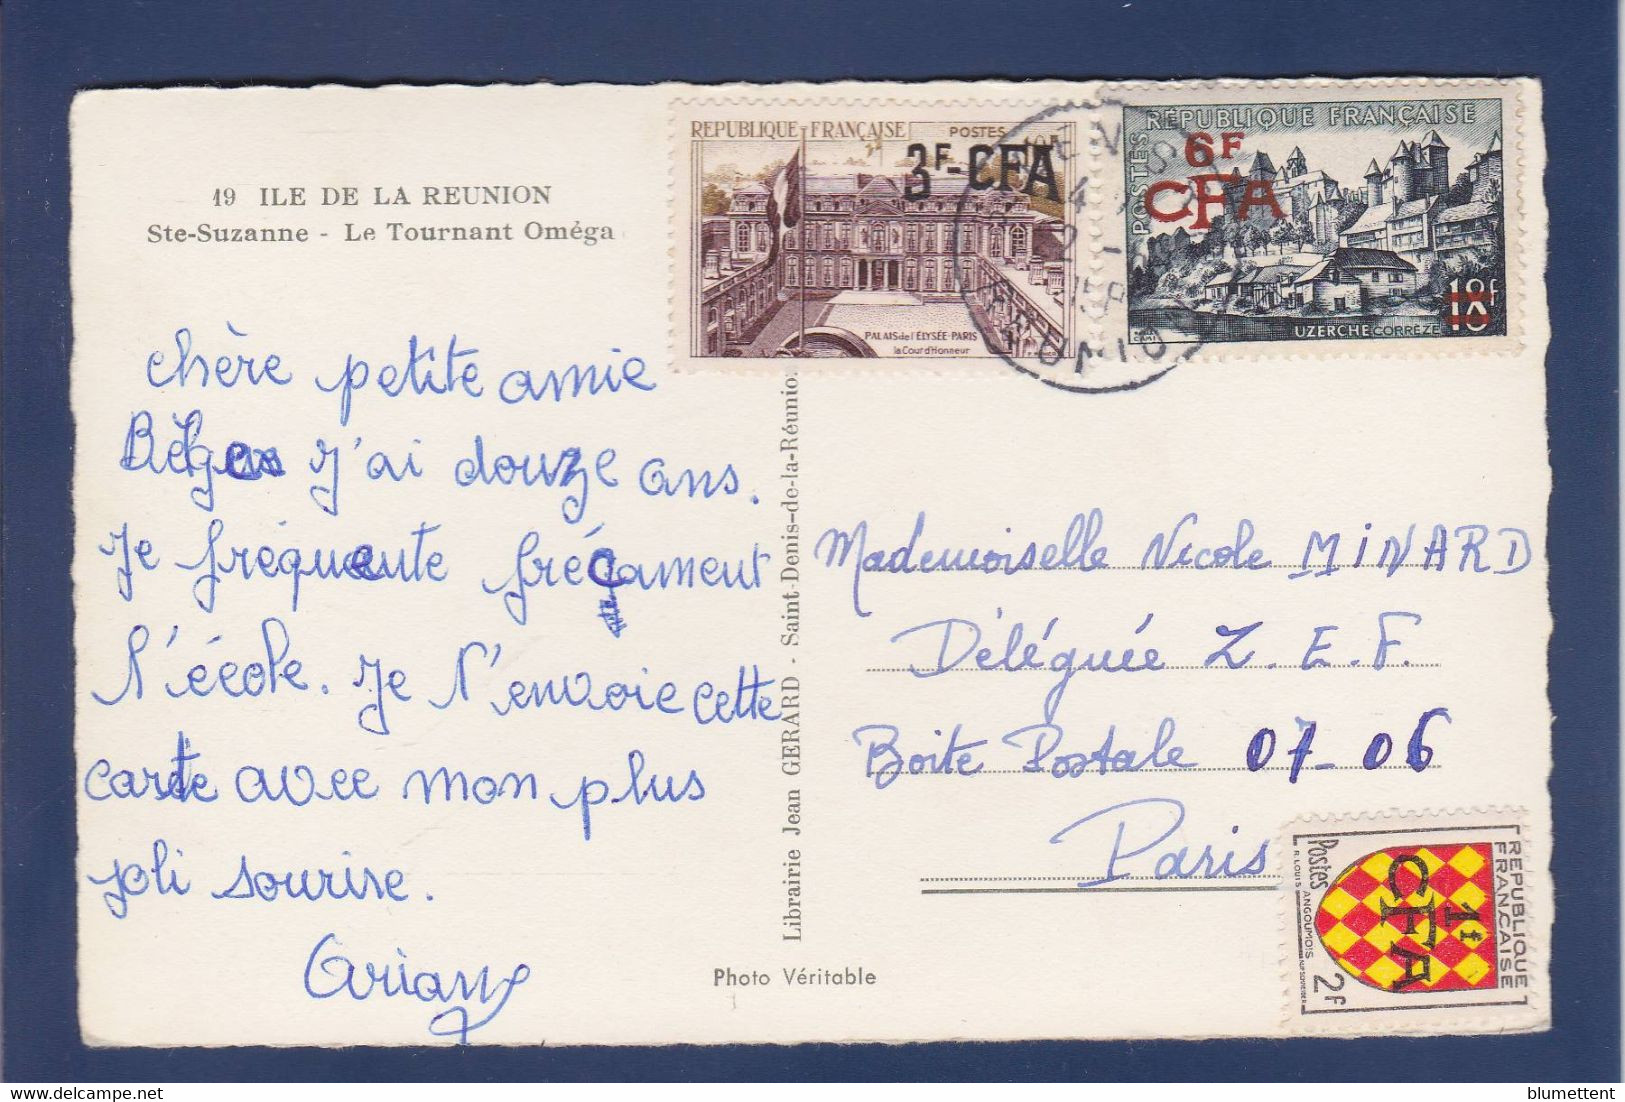 19 ILE DE LA REUNION
Ste-Suzanne - Le Tournant Oméga
chère petite amie
j'ai douze ans.
je fréquente
l'école. je t'envoie cette
carte avec mon plus
joli sourire.
Photo Véritable
Librairie Jean GERARD - Saint-Denis-de-la-Réunion
REPUBLIQUE FRANÇAISE POSTES
3F-CFA
PALAIS de l'ÉLYSÉE-PARIS
la Cour d'Honneur
RÉPUBLIQUE FRANÇAISE
POSTES
6F
CFA
18f
UZERCHE CORRÈZE
REUNION
Mademoiselle Nicole MINARD
Déléguée Z. E. F.
Boite Postale 07-06
Paris
REPUBLIQUE
FRANÇAISE
1f
CFA
Postes
R. LOUIS ANGOUMOIS
2f
blumettent
www.delcampe.net